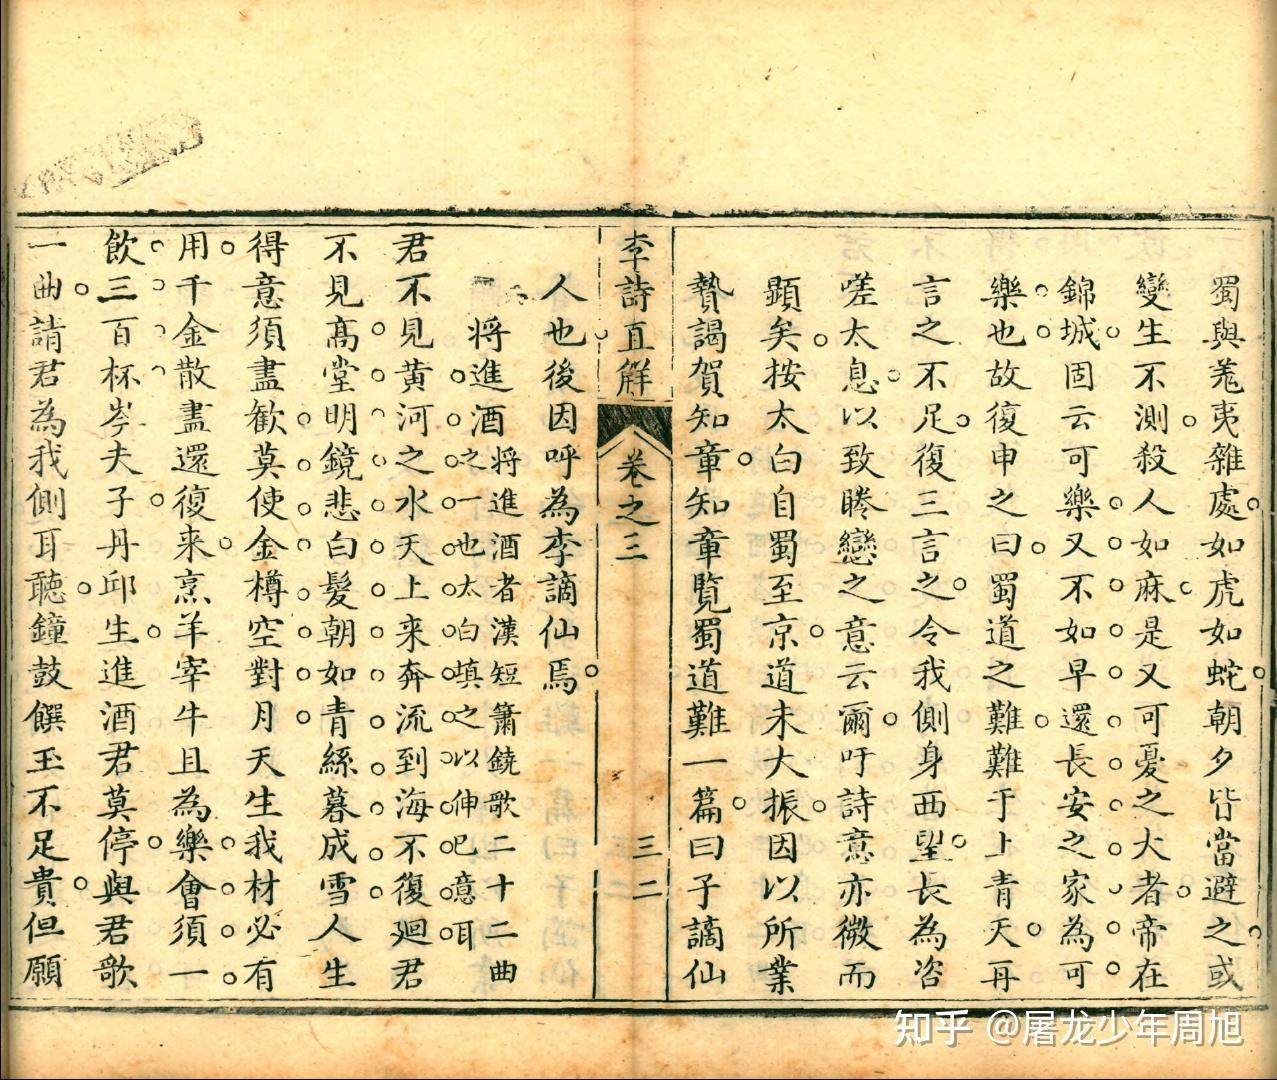 蜀與羗夷雜處如虎如蛇朝夕皆當避之或
變生不測殺人如麻是又可憂之大者帝在
錦城固云可樂又不如早還長安之家為可
樂也故復申之曰蜀道之難難于上青天再
言之不足復三言之令我側身西望長為咨
嗟太息以致睠戀之意云爾吁詩意亦微而
顯矣按太白自蜀至京道未大振因以所業
贄謁賀知章知章覧蜀道難一篇曰子謫仙
李詩直解
卷之三
三二
人也後因呼為李謫仙焉
将進酒
将進酒者漢短簫鐃歌二十二曲
之一也太白填之以伸巴意耳
君不見黄河之水天上来奔流到海不復廻君
不見髙堂明鏡悲白髮朝如青絲暮成雪人生
得意須盡歡莫使金樽空對月天生我材必有
用千金散盡還復来烹羊宰牛且為樂會須一
飲三百杯岑夫子丹邱生進酒君莫停與君歌
一曲請君為我側耳聽鐘鼓饌玉不足貴但願
知乎 @屠龙少年周旭